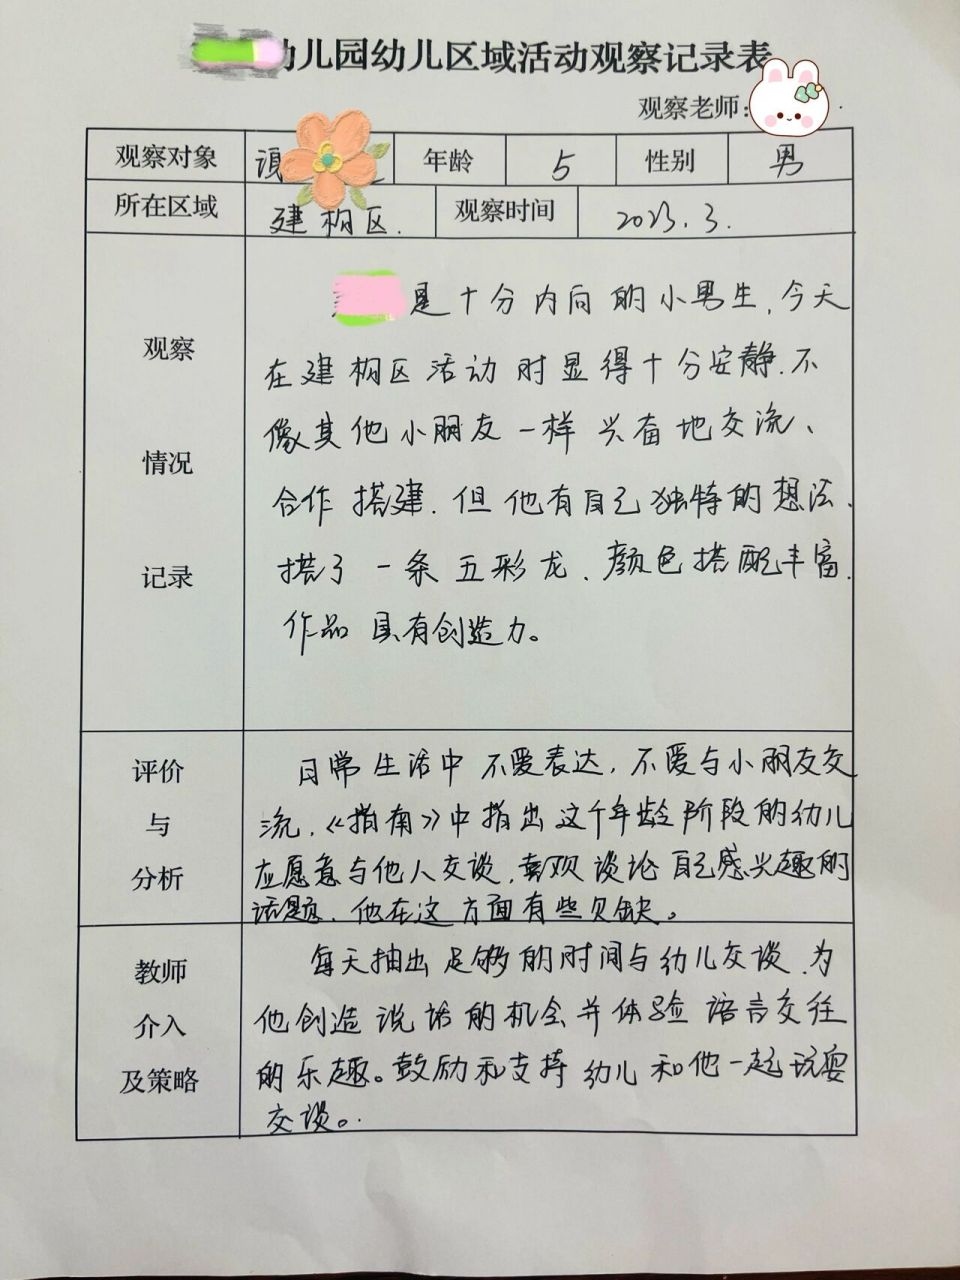 幼儿园幼儿区域活动观察记录表
观察老师:
观察对象 年龄 5 性别 男
所在区域 建构区. 观察时间 2023.3.
观察
情况
记录
是十分内向的小男生,今天
在建构区活动时显得十分安静.不
像其他小朋友一样兴奋地交流、
合作搭建.但他有自己独特的想法、
搭了一条五彩龙、颜色搭配丰富.
作品具有创造力。
评价
与
分析
日常生活中不爱表达,不爱与小朋友交
流.《指南》中指出这个年龄阶段的幼儿
应愿意与他人交谈,喜欢谈论自己感兴趣的
话题、他在这方面有些欠缺。
教师
介入
及策略
每天抽出足够的时间与幼儿交谈.为
他创造说话的机会并体验语言交往
的乐趣。鼓励和支持幼儿和他一起玩耍
交谈。